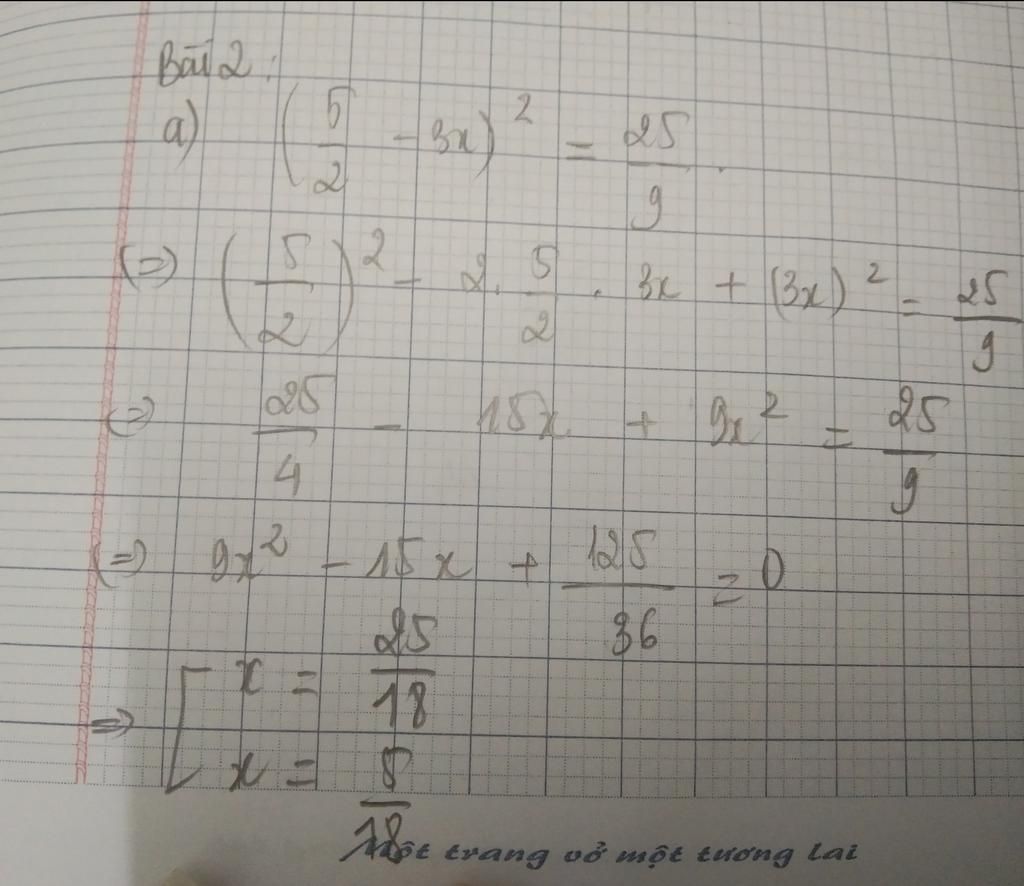 Bài 2:
a) (5/2 - 3x)² = 25/9.
(=) (5/2)² - 2. 5/2 . 3x + (3x)² = 25/9
(=) 25/4 - 15x + 9x² = 25/9
(=) 9x² - 15x + 125/36 = 0
=> [ x = 25/18
x = 5/18
Một trang vở một tương lai